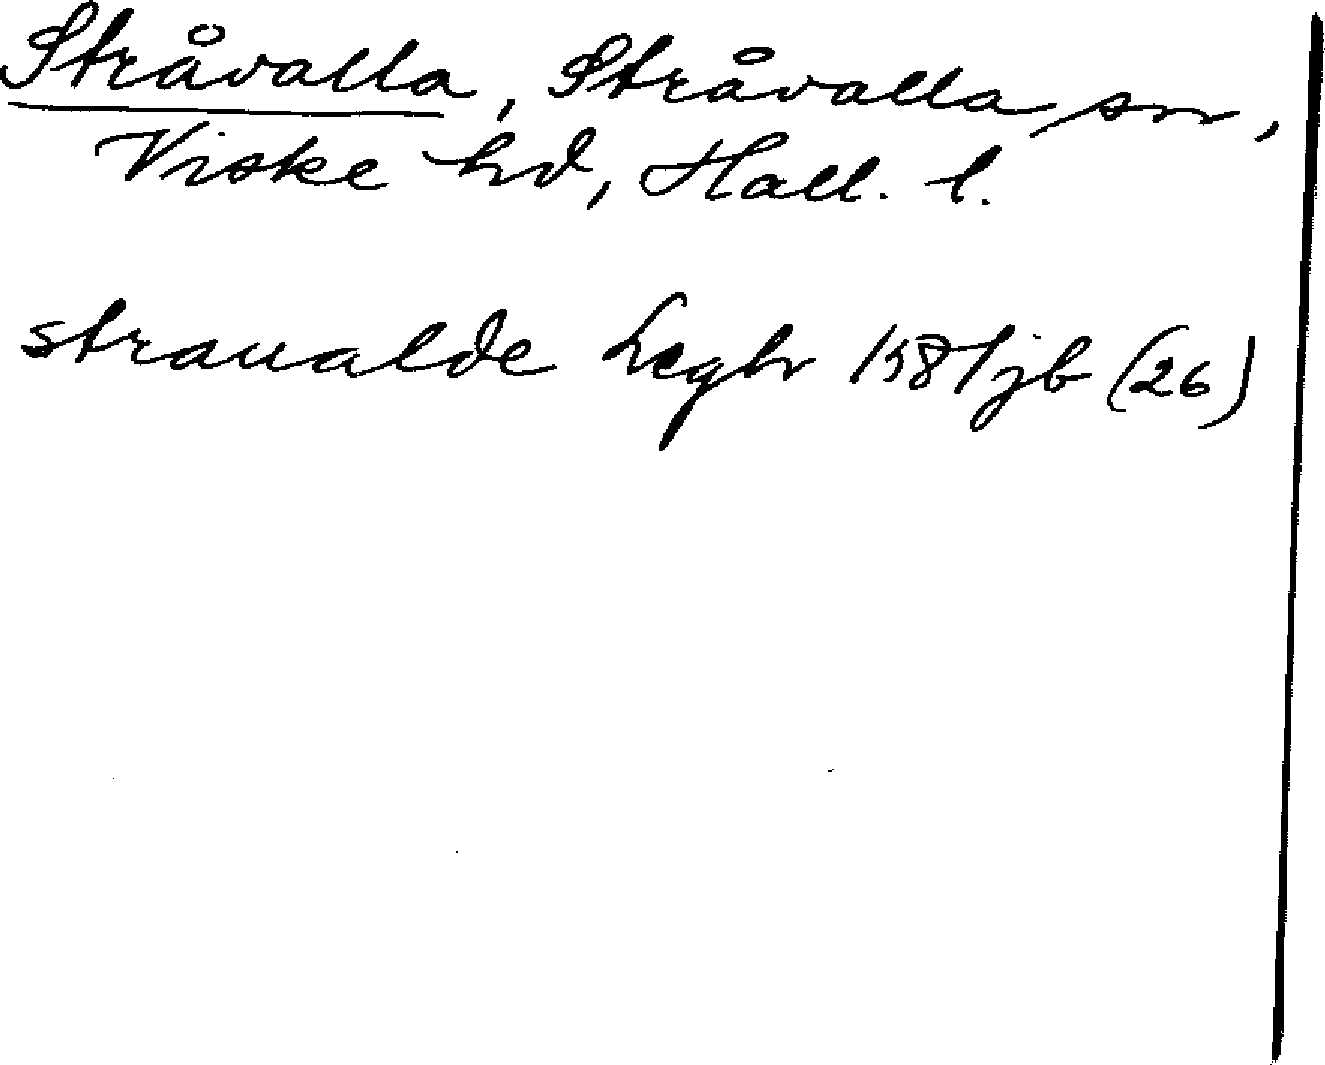 Stråvalla, Stråvalla sn,
Viske hd, Hall. l.
straualde heghr 1581 jb (26)